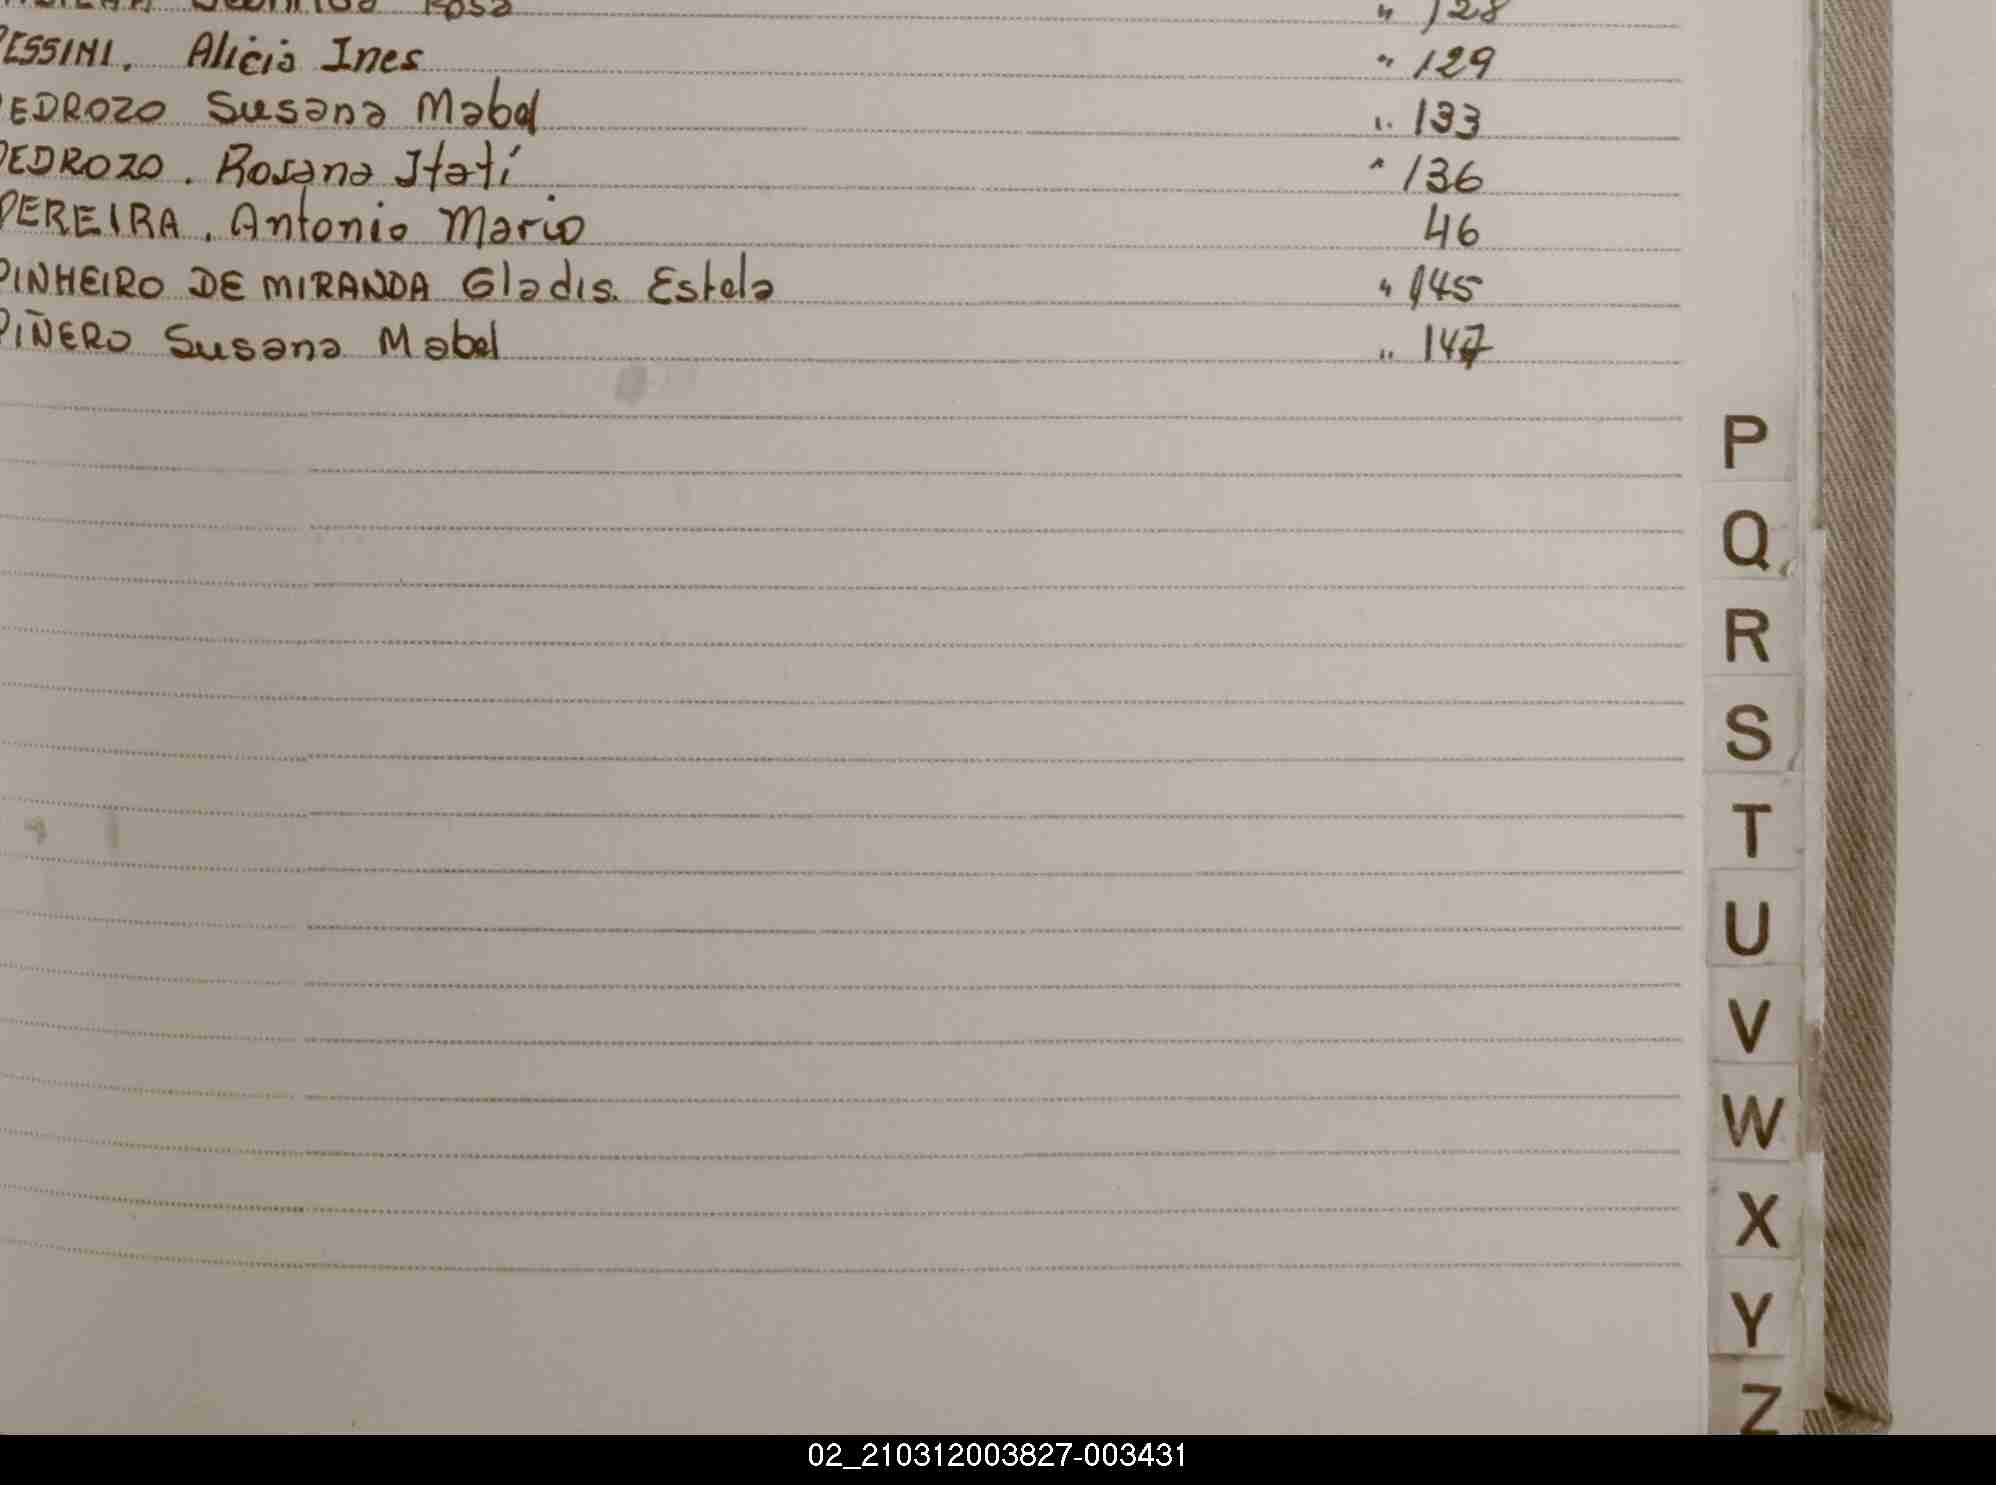 Rosa " 128
PESSINI. Alicia Ines " 129
PEDROZO Susana Mabel " 133
PEDROZO. Rosana Itatí " 136
PEREIRA. Antonio Mario 46
PINHEIRO DE MIRANDA Gladis. Estela " 145
PIÑERO Susana Mabel " 147
P
Q
R
S
T
U
V
W
X
Y
Z
02_210312003827-003431